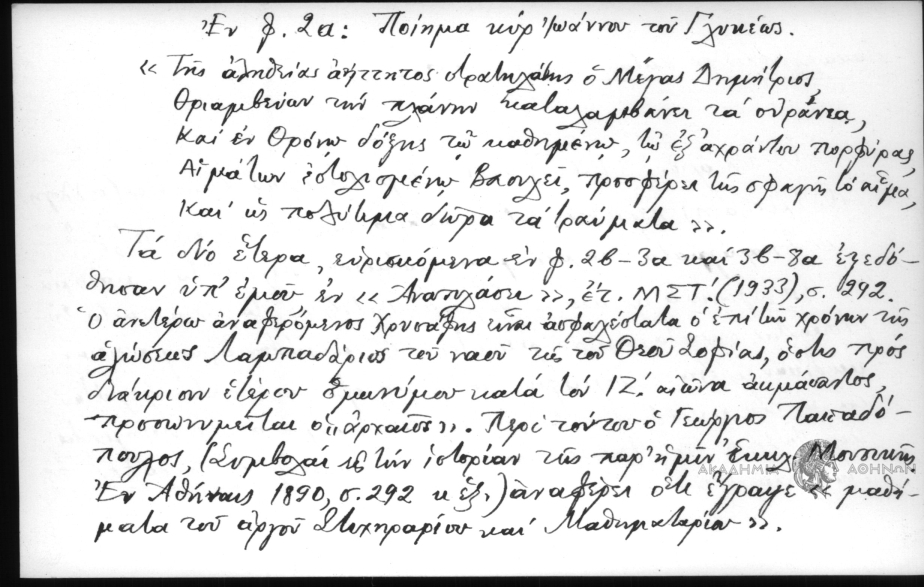 Ἐν φ. 2α: Ποίημα κύρ Ἰωάννου τοῦ Γλυκέως.
« Τῆς ἀληθείας ἀήττητος στρατηλάτης ὁ Μέγας Δημήτριος,
Θριαμβεύων τήν πλάνην καταλαμβάνει τά οὐράνια,
Καί ἐν Θρόνῳ δόξης τῷ καθημένῳ, τῷ ἐξ ἀχράντου πορφύρας,
Αἱμάτων ἐστολισμένῳ Βασιλεῖ, προσφέρει τῆς σφαγῆς τό αἷμα,
Καί ὡς πολύτιμα δῶρα τά τραύματα ».
Τά δύο ἕτερα, εὑρισκόμενα ἐν φ. 2β-3α καί 3β-8α ἐξεδό-
θησαν ὑπ' ἐμοῦ ἐν « Ἀναπλάσει », ἔτ. ΜΣΤ'. (1933), σ. 292.
Ὁ ἀνωτέρω ἀναφερόμενος Χρυσάφης εἶναι ἀσφαλέστατα ὁ ἐπί τῶν χρόνων τῆς
ἁλώσεως Λαμπαδάριος τοῦ ναοῦ τῆς τοῦ Θεοῦ Σοφίας, ὅστις πρός
διάκρισιν ἑτέρου ὁμωνύμου κατά τόν ΙΖ'. αἰῶνα ἀκμάσαντος,
προσωνυμεῖται ὁ «ἀρχαῖος». Περί τούτου ὁ Γεώργιος Παπαδό-
πουλος, (Συμβολαί εἰς τήν ἱστορίαν τῆς παρ' ἡμῖν ἐκκλ. Μουσικῆς
Ἐν Ἀθήναις 1890, σ. 292 κ ἑξ.) ἀναφέρει ὅτι ἔγραψε « μαθή-
ματα τοῦ ἀργοῦ Στιχηραρίου καί Μαθηματαρίου ».
ΑΚΑΔΗΜΙΑ ΑΘΗΝΩΝ